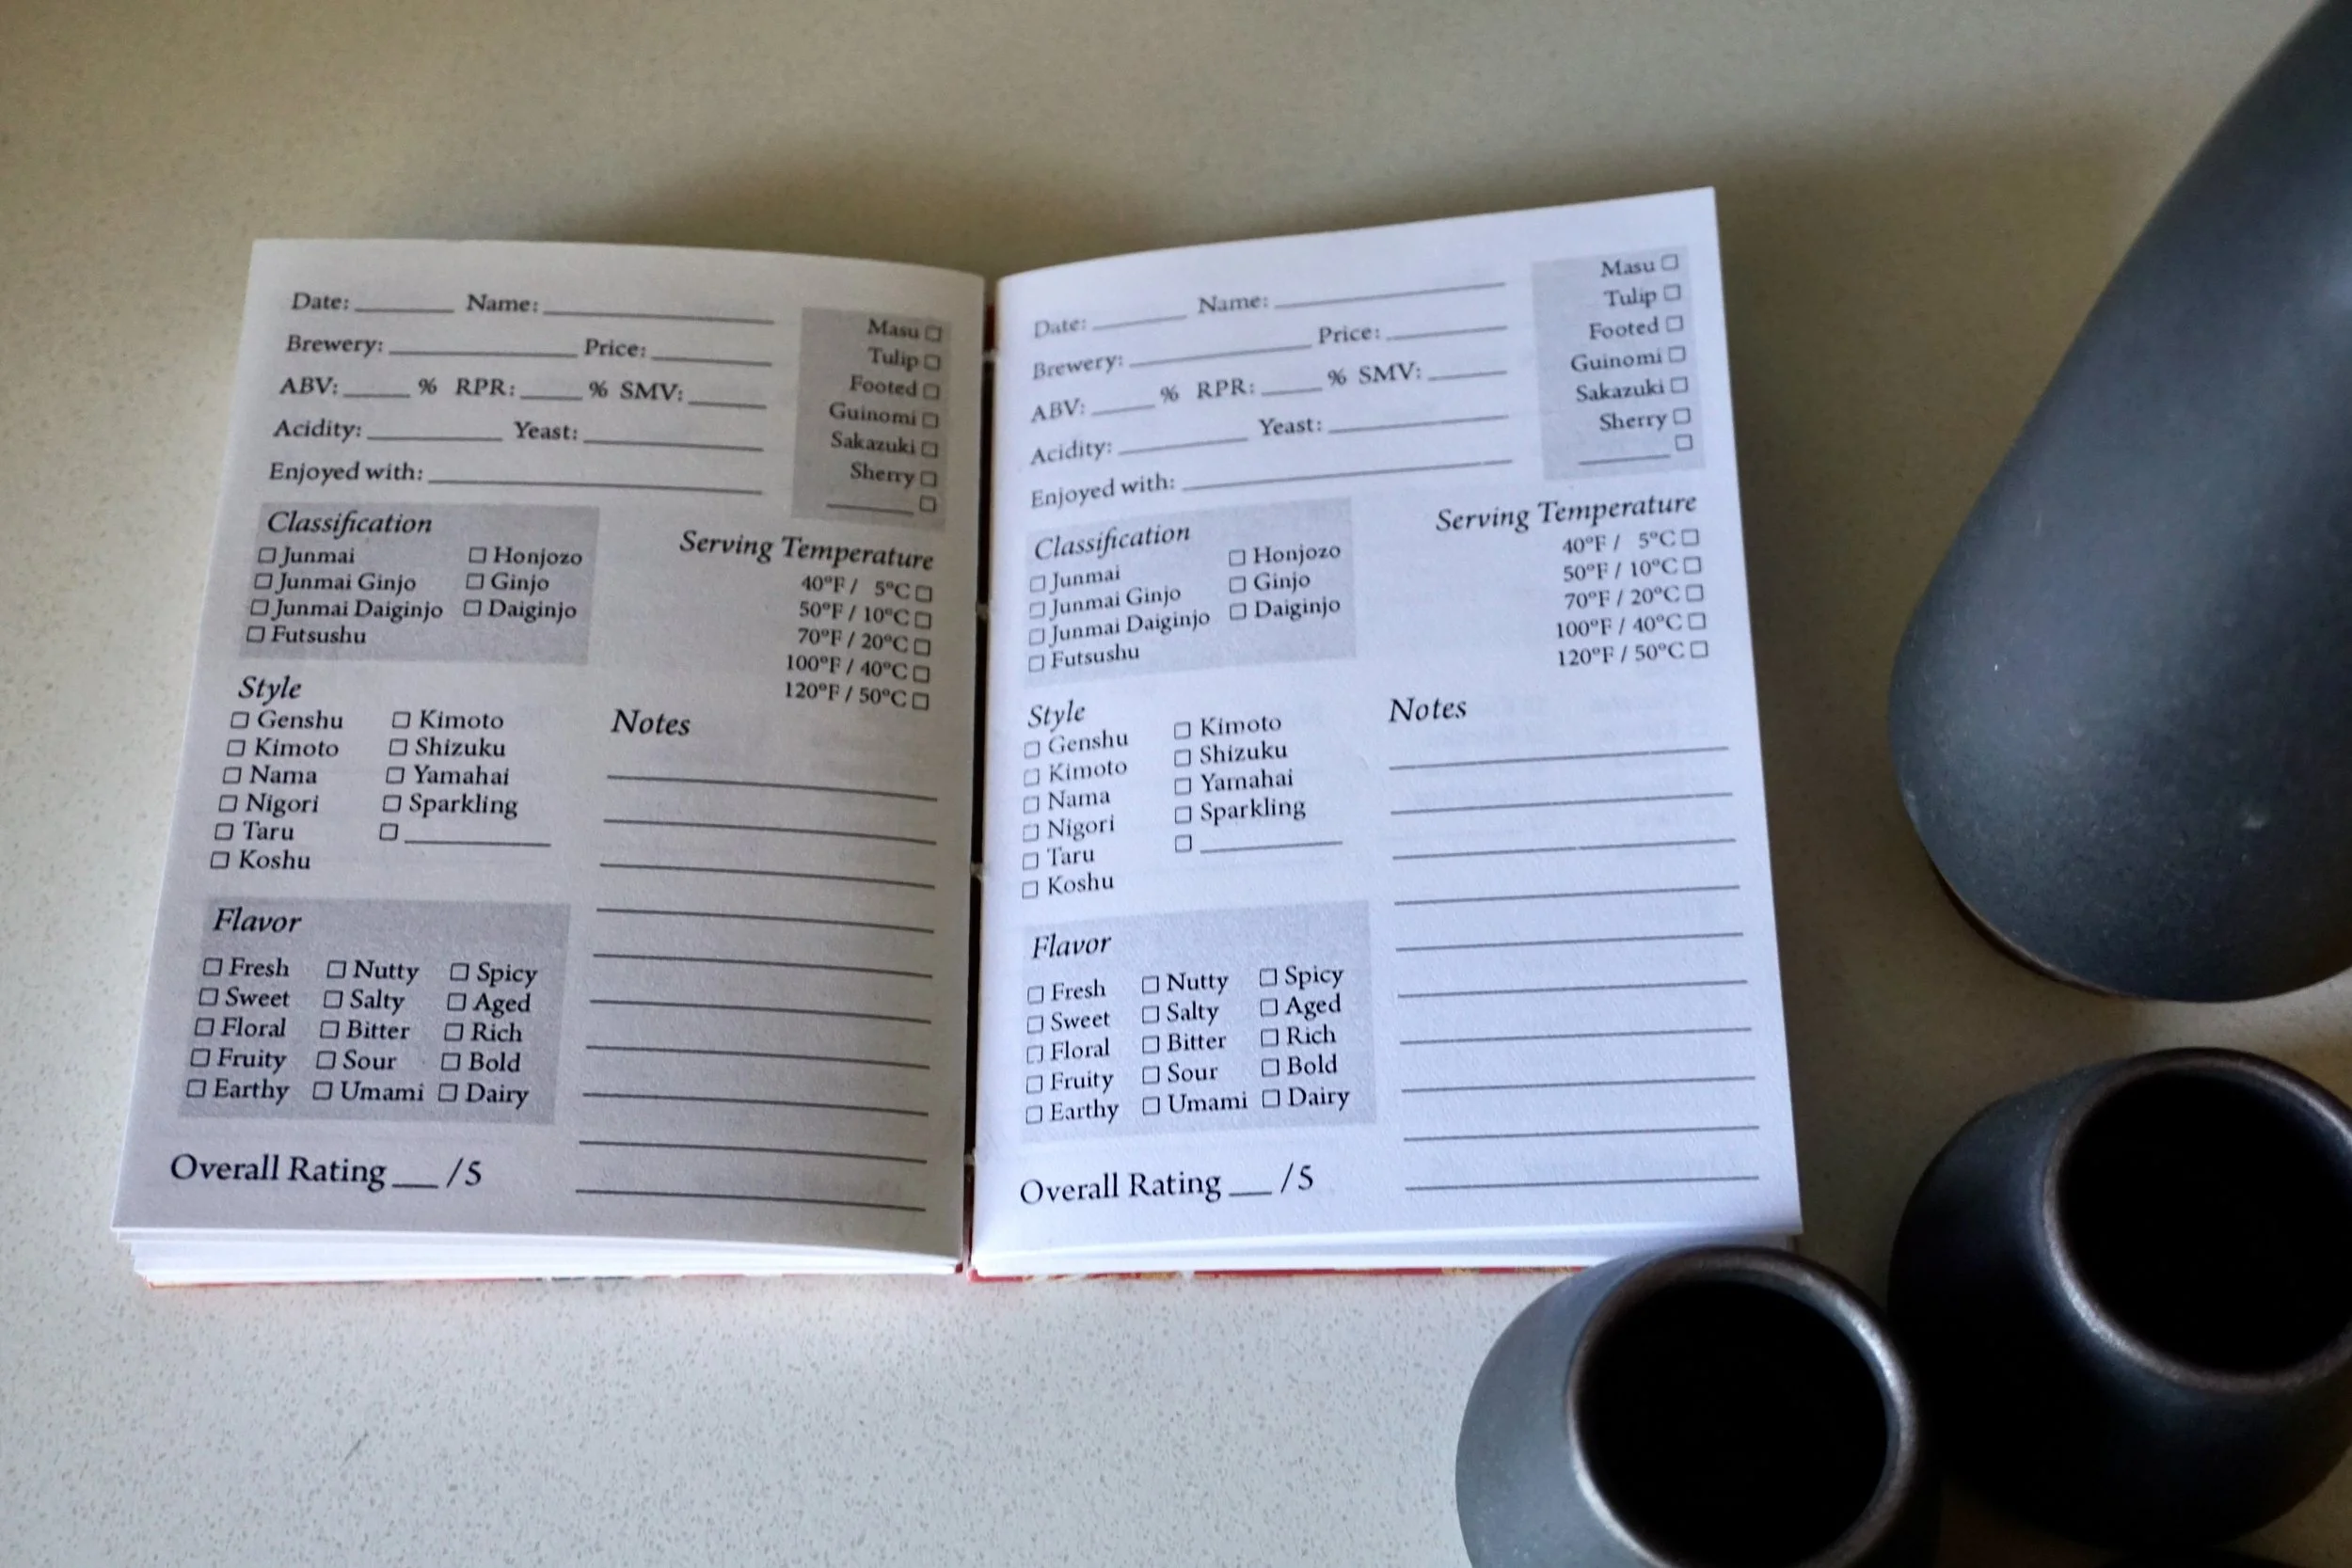 Date: ______ Name: ______
Brewery: ______ Price: ______
ABV: ____ % RPR: ____ % SMV: ____
Acidity: ______ Yeast: ______
Enjoyed with: ______
Masu ☐
Tulip ☐
Footed ☐
Guinomi ☐
Sakazuki ☐
Sherry ☐
______ ☐
Classification
☐ Junmai ☐ Honjozo
☐ Junmai Ginjo ☐ Ginjo
☐ Junmai Daiginjo ☐ Daiginjo
☐ Futsushu
Serving Temperature
40°F / 5°C ☐
50°F / 10°C ☐
70°F / 20°C ☐
100°F / 40°C ☐
120°F / 50°C ☐
Style
☐ Genshu ☐ Kimoto
☐ Kimoto ☐ Shizuku
☐ Nama ☐ Yamahai
☐ Nigori ☐ Sparkling
☐ Taru ☐ ______
☐ Koshu
Notes
Flavor
☐ Fresh ☐ Nutty ☐ Spicy
☐ Sweet ☐ Salty ☐ Aged
☐ Floral ☐ Bitter ☐ Rich
☐ Fruity ☐ Sour ☐ Bold
☐ Earthy ☐ Umami ☐ Dairy
Overall Rating ___ /5
Date: ______ Name: ______
Brewery: ______ Price: ______
ABV: ____ % RPR: ____ % SMV: ____
Acidity: ______ Yeast: ______
Enjoyed with: ______
Masu ☐
Tulip ☐
Footed ☐
Guinomi ☐
Sakazuki ☐
Sherry ☐
______ ☐
Classification
☐ Junmai ☐ Honjozo
☐ Junmai Ginjo ☐ Ginjo
☐ Junmai Daiginjo ☐ Daiginjo
☐ Futsushu
Serving Temperature
40°F / 5°C ☐
50°F / 10°C ☐
70°F / 20°C ☐
100°F / 40°C ☐
120°F / 50°C ☐
Style
☐ Genshu ☐ Kimoto
☐ Kimoto ☐ Shizuku
☐ Nama ☐ Yamahai
☐ Nigori ☐ Sparkling
☐ Taru ☐ ______
☐ Koshu
Notes
Flavor
☐ Fresh ☐ Nutty ☐ Spicy
☐ Sweet ☐ Salty ☐ Aged
☐ Floral ☐ Bitter ☐ Rich
☐ Fruity ☐ Sour ☐ Bold
☐ Earthy ☐ Umami ☐ Dairy
Overall Rating ___ /5